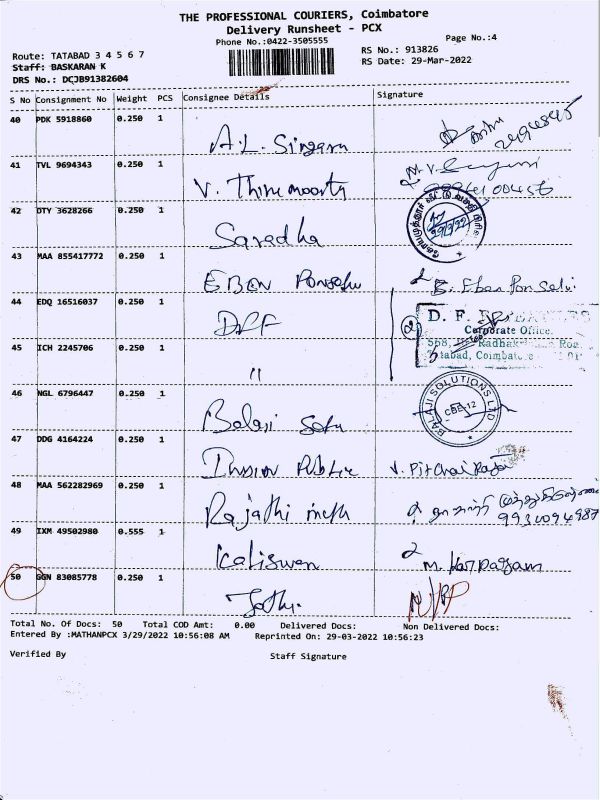 THE PROFESSIONAL COURIERS, Coimbatore
Delivery Runsheet - PCX
Phone No.:0422-3505555
Page No.:4
Route: TATABAD 3 4 5 6 7
RS No.: 913826
Staff: BASKARAN K
RS Date: 29-Mar-2022
DRS No.: DCJB91382604
S No Consignment No Weight PCS Consignee Details Signature
40 PDK 5918860 0.250 1
A.L. Singaru
41 TVL 9694343 0.250 1
V. Thirumoorty
42 DTY 3628266 0.250 1
Saradha
29/3/22
43 MAA 855417772 0.250 1
EBEN Ponselvi E. Eben Ponselvi
44 EDQ 16516037 0.250 1
DFF
D. F.
Corporate Office.
568, Radhak
tabad, Coimbat
45 ICH 2245706 0.250 1
"
46 NGL 6796447 0.250 1
Balaji Solu
BALAJI SOLUTIONS LTD
CBE-12
47 DDG 4164224 0.250 1
Public V. Pitchai Raja
48 MAA 562282969 0.250 1
Rajathi
49 IXM 49502980 0.555 1
Kaliswari
M. Karpagam
50 GGN 83085778 0.250 1
Jothi
Total No. Of Docs: 50 Total COD Amt: 0.00 Delivered Docs: Non Delivered Docs:
Entered By :MATHANPCX 3/29/2022 10:56:08 AM Reprinted On: 29-03-2022 10:56:23
Verified By Staff Signature